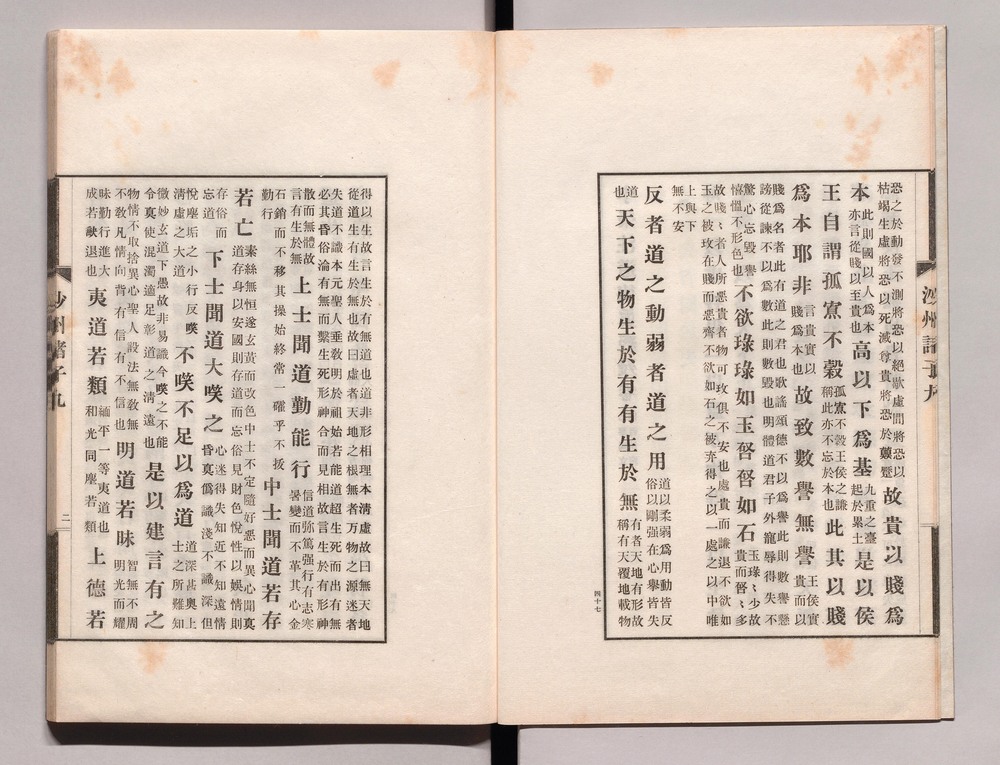 恐之於動發不測將恐以絕歇虛間將恐以
枯竭生虛將恐以死滅尊貴將恐於顛蹙
故貴以賤爲
本
此則國以人爲本
亦言從賤以至貴也
高以下爲基
九重之臺
起於累土
是以侯
王自謂孤寡不轂
孤寡不轂王侯之謙
稱此亦不忘於本也
此其以賤
爲本耶非
言貴實以
賤爲本也
故致數譽無譽
王侯實
貴而以
賤爲名者此有道之君也歌謠頌德不以爲譽此則數譽懸
謗從諫不以爲數此則數毀也明體道君子外寵辱得失不
驚心忘毀譽
憘慍不形色也
不欲琭琭如玉硌硌如石
玉琭〻少故
貴而硌〻多
故賤〻者人所惡貴者物可玫俱不安也處貴而謙退不欲如
玉之被玫在賤而惡齊不欲如石之被棄得之以一處之以中唯
上與下
無不安
反者道之動弱者道之用
道以柔弱爲用動皆反
俗以剛强在心舉皆失
道
也
天下之物生於有有生於無
有者天地有形故
稱有天覆地載物
四十七
得以生故言生於有無道也道非形相理本淸虛故曰無天地
從道生有生於無也故曰虛者天地之根無者万物之源迷者
失道不識本元聖人垂敎明於祖始若能道超生死而出有無
必其昏俗淪有無而繫生死形神合而見相故言生於有形神
散而無體故
言有生於無
上士聞道勤能行
信道弥篤强行有志寒
暑變而不革其心金
石銷而不移其操始終常一確乎不拔
勤行
中士聞道若存
若亡
素絲無恒遂玄黃而改色中士不定隨好惡而異心聞真
道存身以安國則存道而忘俗見財色悅性以娛情則
存俗而
忘道
下士聞道大㗛之
心迷得失知近不知遠情
昏真僞識淺不識深但
悅塵垢之小行反㗛
淸虛之大道
不㗛不足以爲道
道深甚奧上
士之所難知
微妙玄道下愚故非易識今㗛之不能
令真使混濁適足彰道之淸遠也
是以建言有之
物情不取捨異心聖人設法無敎無
不敎凡情向背有信有不信也
明道若昧
智無不周
明光而耀
昧勤行進大
成若獻退也
夷道若類
緬平一等夷道也
和光同塵若類
上德若
沙州諸子九
二